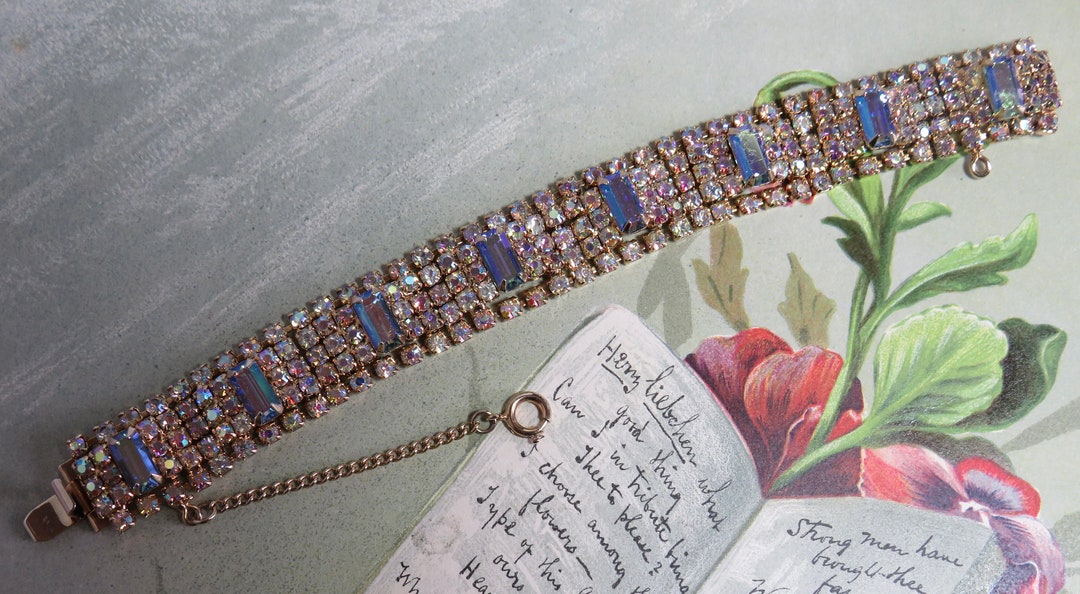 Herzliebchen what
Can good thing
I in tribute bring
Thee to please?
I choose among
flowers—
Type of this
ours
Hea
Wh
Strong men have
brought thee